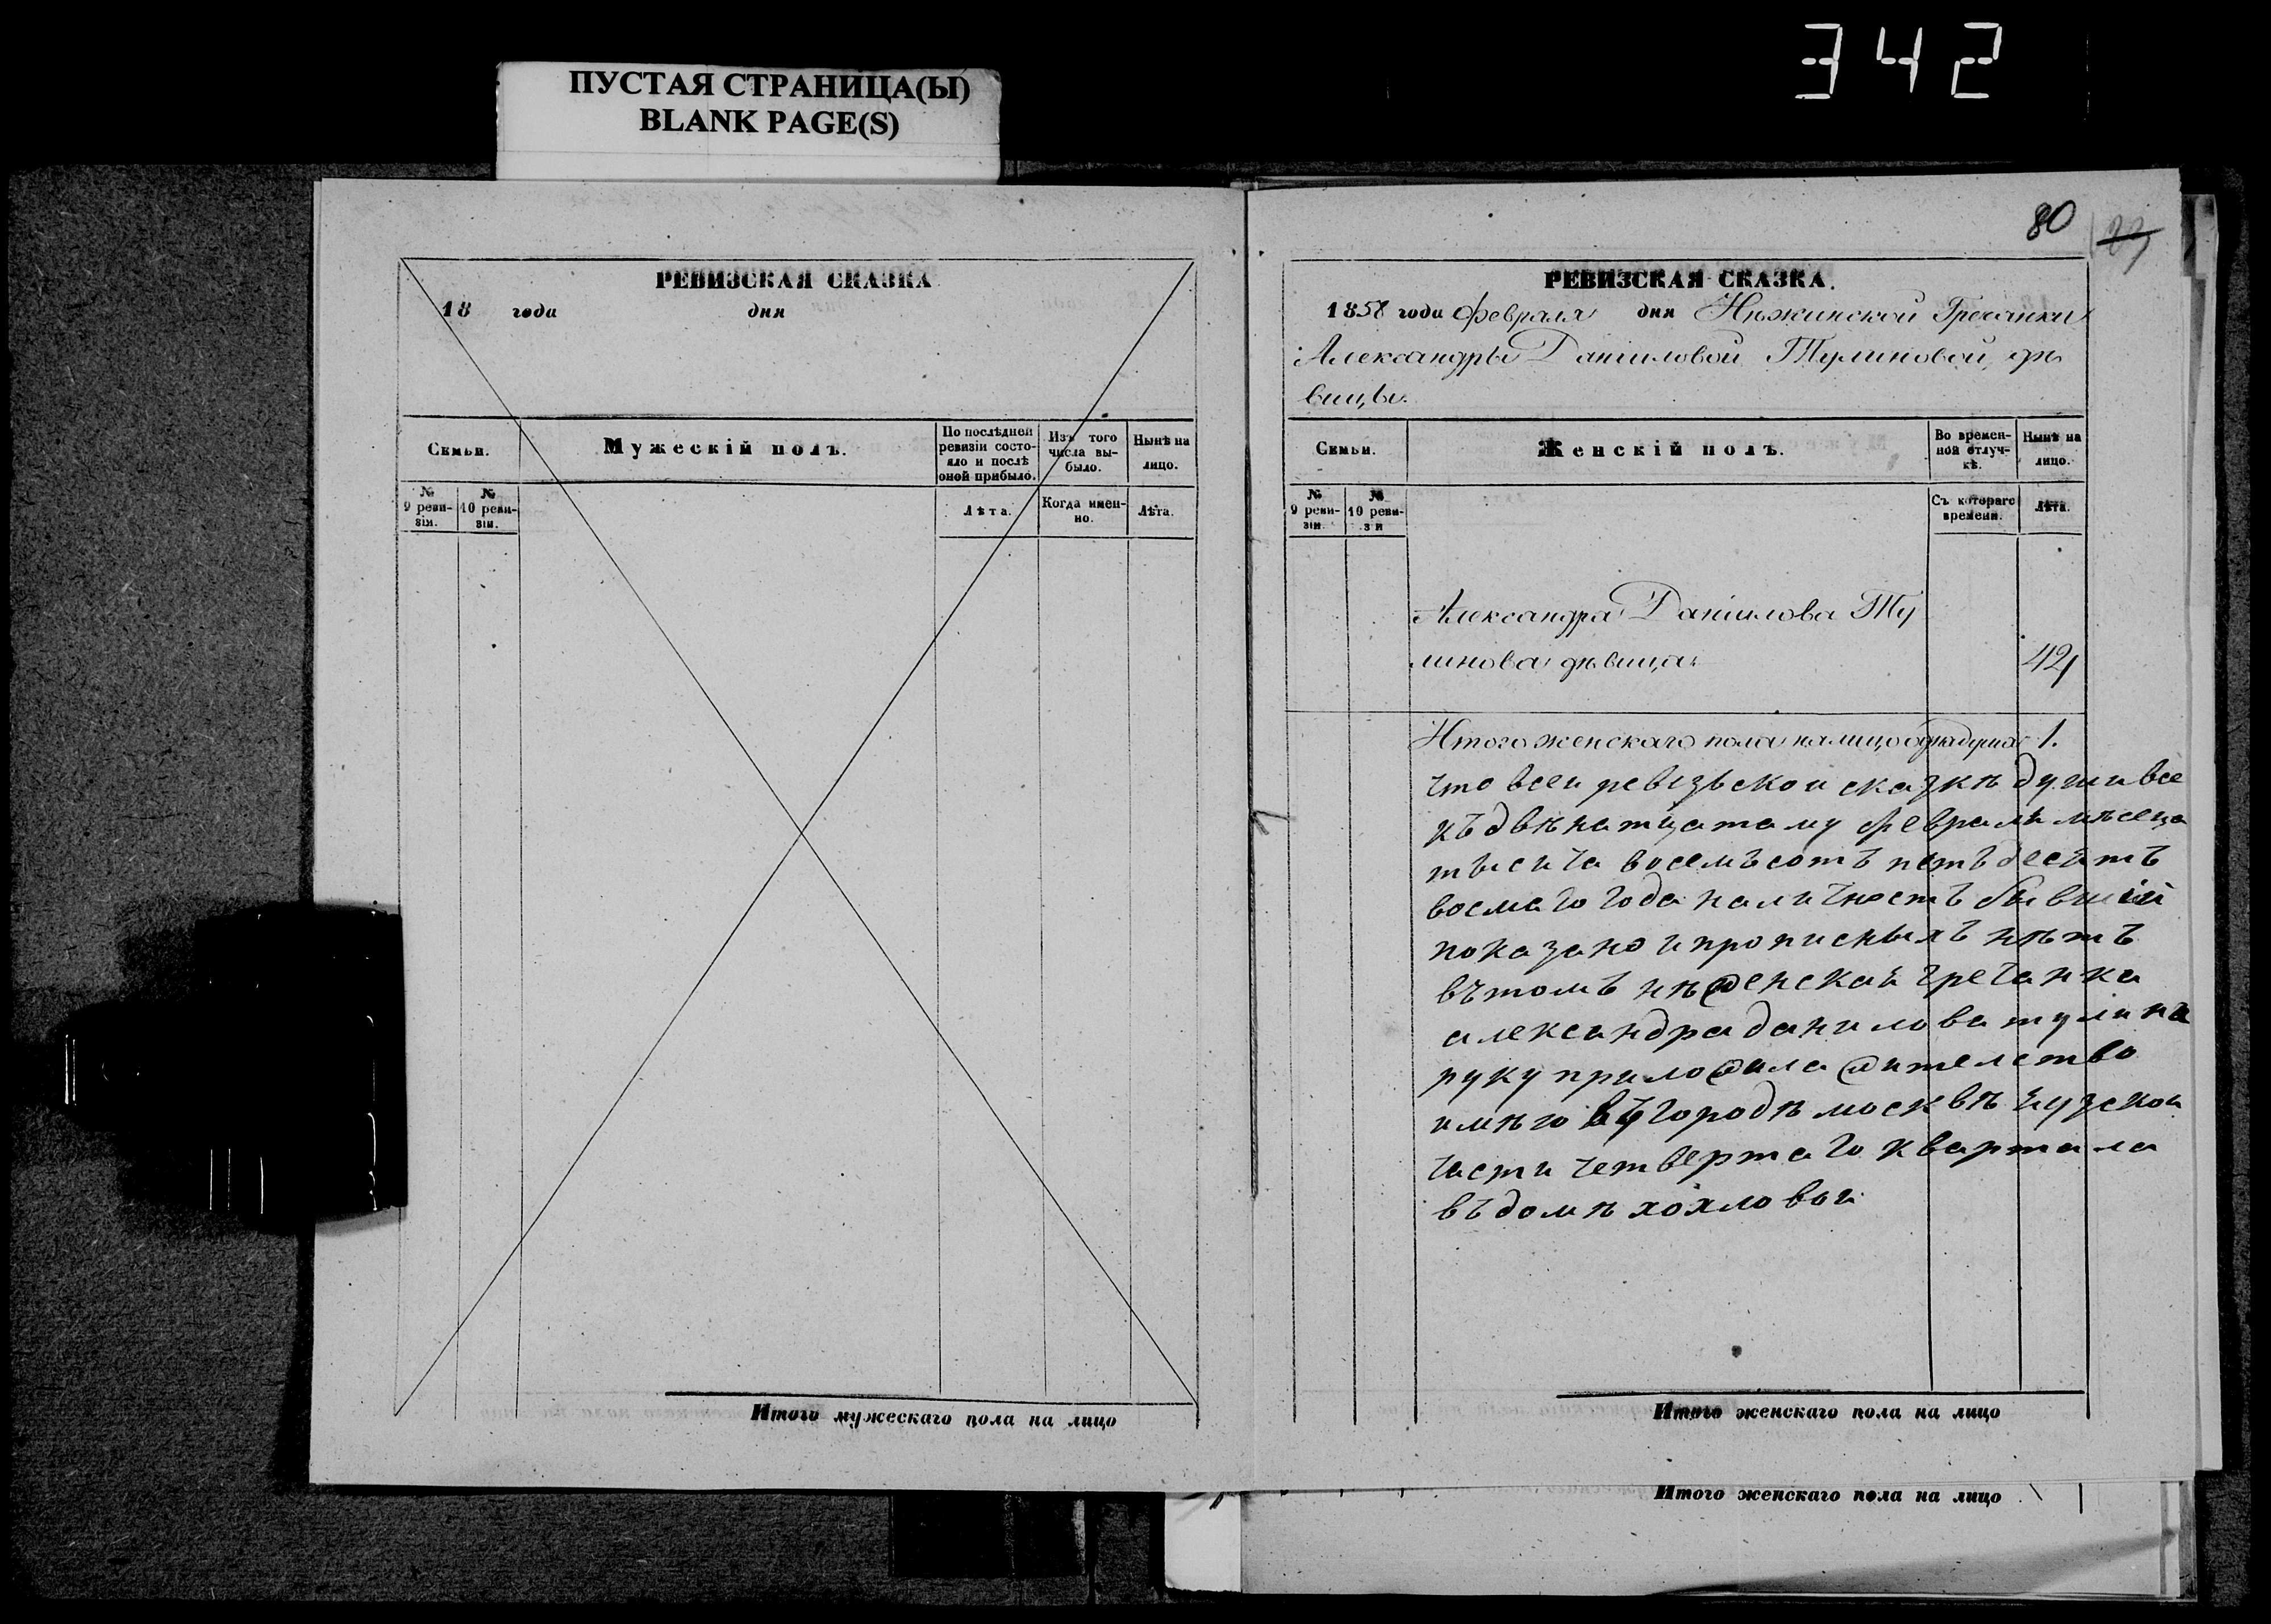 342
ПУСТАЯ СТРАНИЦА(Ы)
BLANK PAGE(S)
РЕВИЗСКАЯ СКАЗКА
18 года дня
Семьи.
Мужескій полъ.
По послѣдней ревизіи состояло и послѣ оной прибыло.
Изъ того числа выбыло.
Нынѣ на лицо.
№ 9 ревизіи.
№ 10 ревизіи.
Лѣта.
Когда именно.
Лѣта.
Итого мужескаго пола на лицо
80
РЕВИЗСКАЯ СКАЗКА.
1858 года Февраля дня Нѣжинской Гречанки
Александры Даніиловой Тулиновой, дѣ
вицы.
Семьи.
Женскій полъ.
Во временной отлучкѣ.
Нынѣ на лицо.
№ 9 ревизіи.
№ 10 ревиз и
Съ котораго времени.
Лѣта.
Александра Даніилова Ту
линова дѣвица 42
Итого женскаго пола на лицо одна душа 1.
что всеи ревизьскои сказкѣ души все
къ двѣнатцатаму февраля мѣсеца
тысича восемъсотъ петъдесятъ
восмаго года наличность бывшіи
показано и прописныхъ нѣтъ
въ томъ нѣженская гречанка
александра данилова тулина
руку приложила жителство
имѣю въ городѣ москвѣ яузскои
части четвертаго квартала
въ домѣ хохловои
Итого женскаго пола на лицо
Итого женскаго пола на лицо